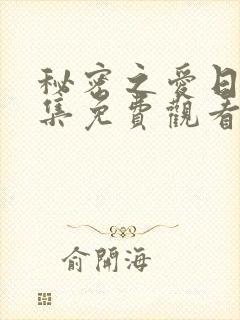 秘密之愛日
集免費觀看
俞開海